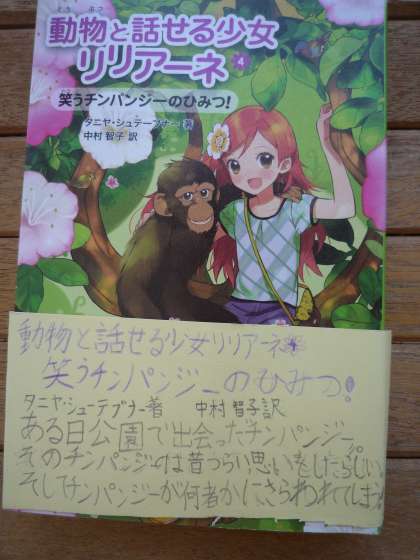 どうぶつ
動物と話せる少女
リリアーネ4
笑うチンパンジーのひみつ!
タニヤ・シュテーブナー 著
中村 智子 訳
動物と話せる少女リリアーネ4
笑うチンパンジーのひみつ!
タニヤ・シュテブナー著 中村智子訳
ある日公園で出会ったチンパンジー。
そのチンパンジーは昔つらい思いをしたらしい
そしてチンパンジーが何者かにさらわれてしまう